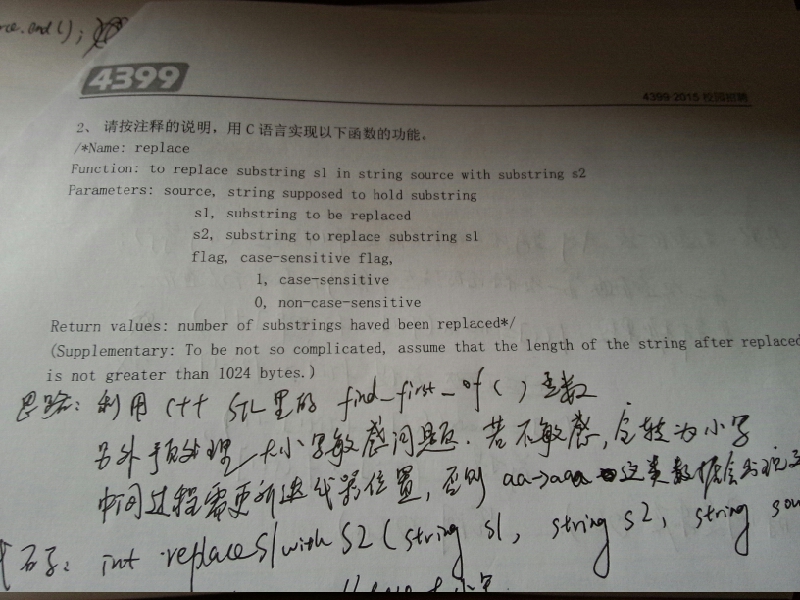 rce.end();
4399
4399 2015 校园招聘
2、 请按注释的说明，用 C 语言实现以下函数的功能。
/*Name: replace
Function: to replace substring s1 in string source with substring s2
Parameters: source, string supposed to hold substring
s1, substring to be replaced
s2, substring to replace substring s1
flag, case-sensitive flag,
1, case-sensitive
0, non-case-sensitive
Return values: number of substrings haved been replaced*/
(Supplementary: To be not so complicated, assume that the length of the string after replaced
is not greater than 1024 bytes.)
思路: 利用 C++ STL里的 find_first_of() 函数
另外预处理大小写敏感问题. 若不敏感, 转为小写
中间过程需更新迭代器位置, 否则 aa->aaa 这类数据会出现
码: int replaceS1withS2(string s1, string s2, string sou